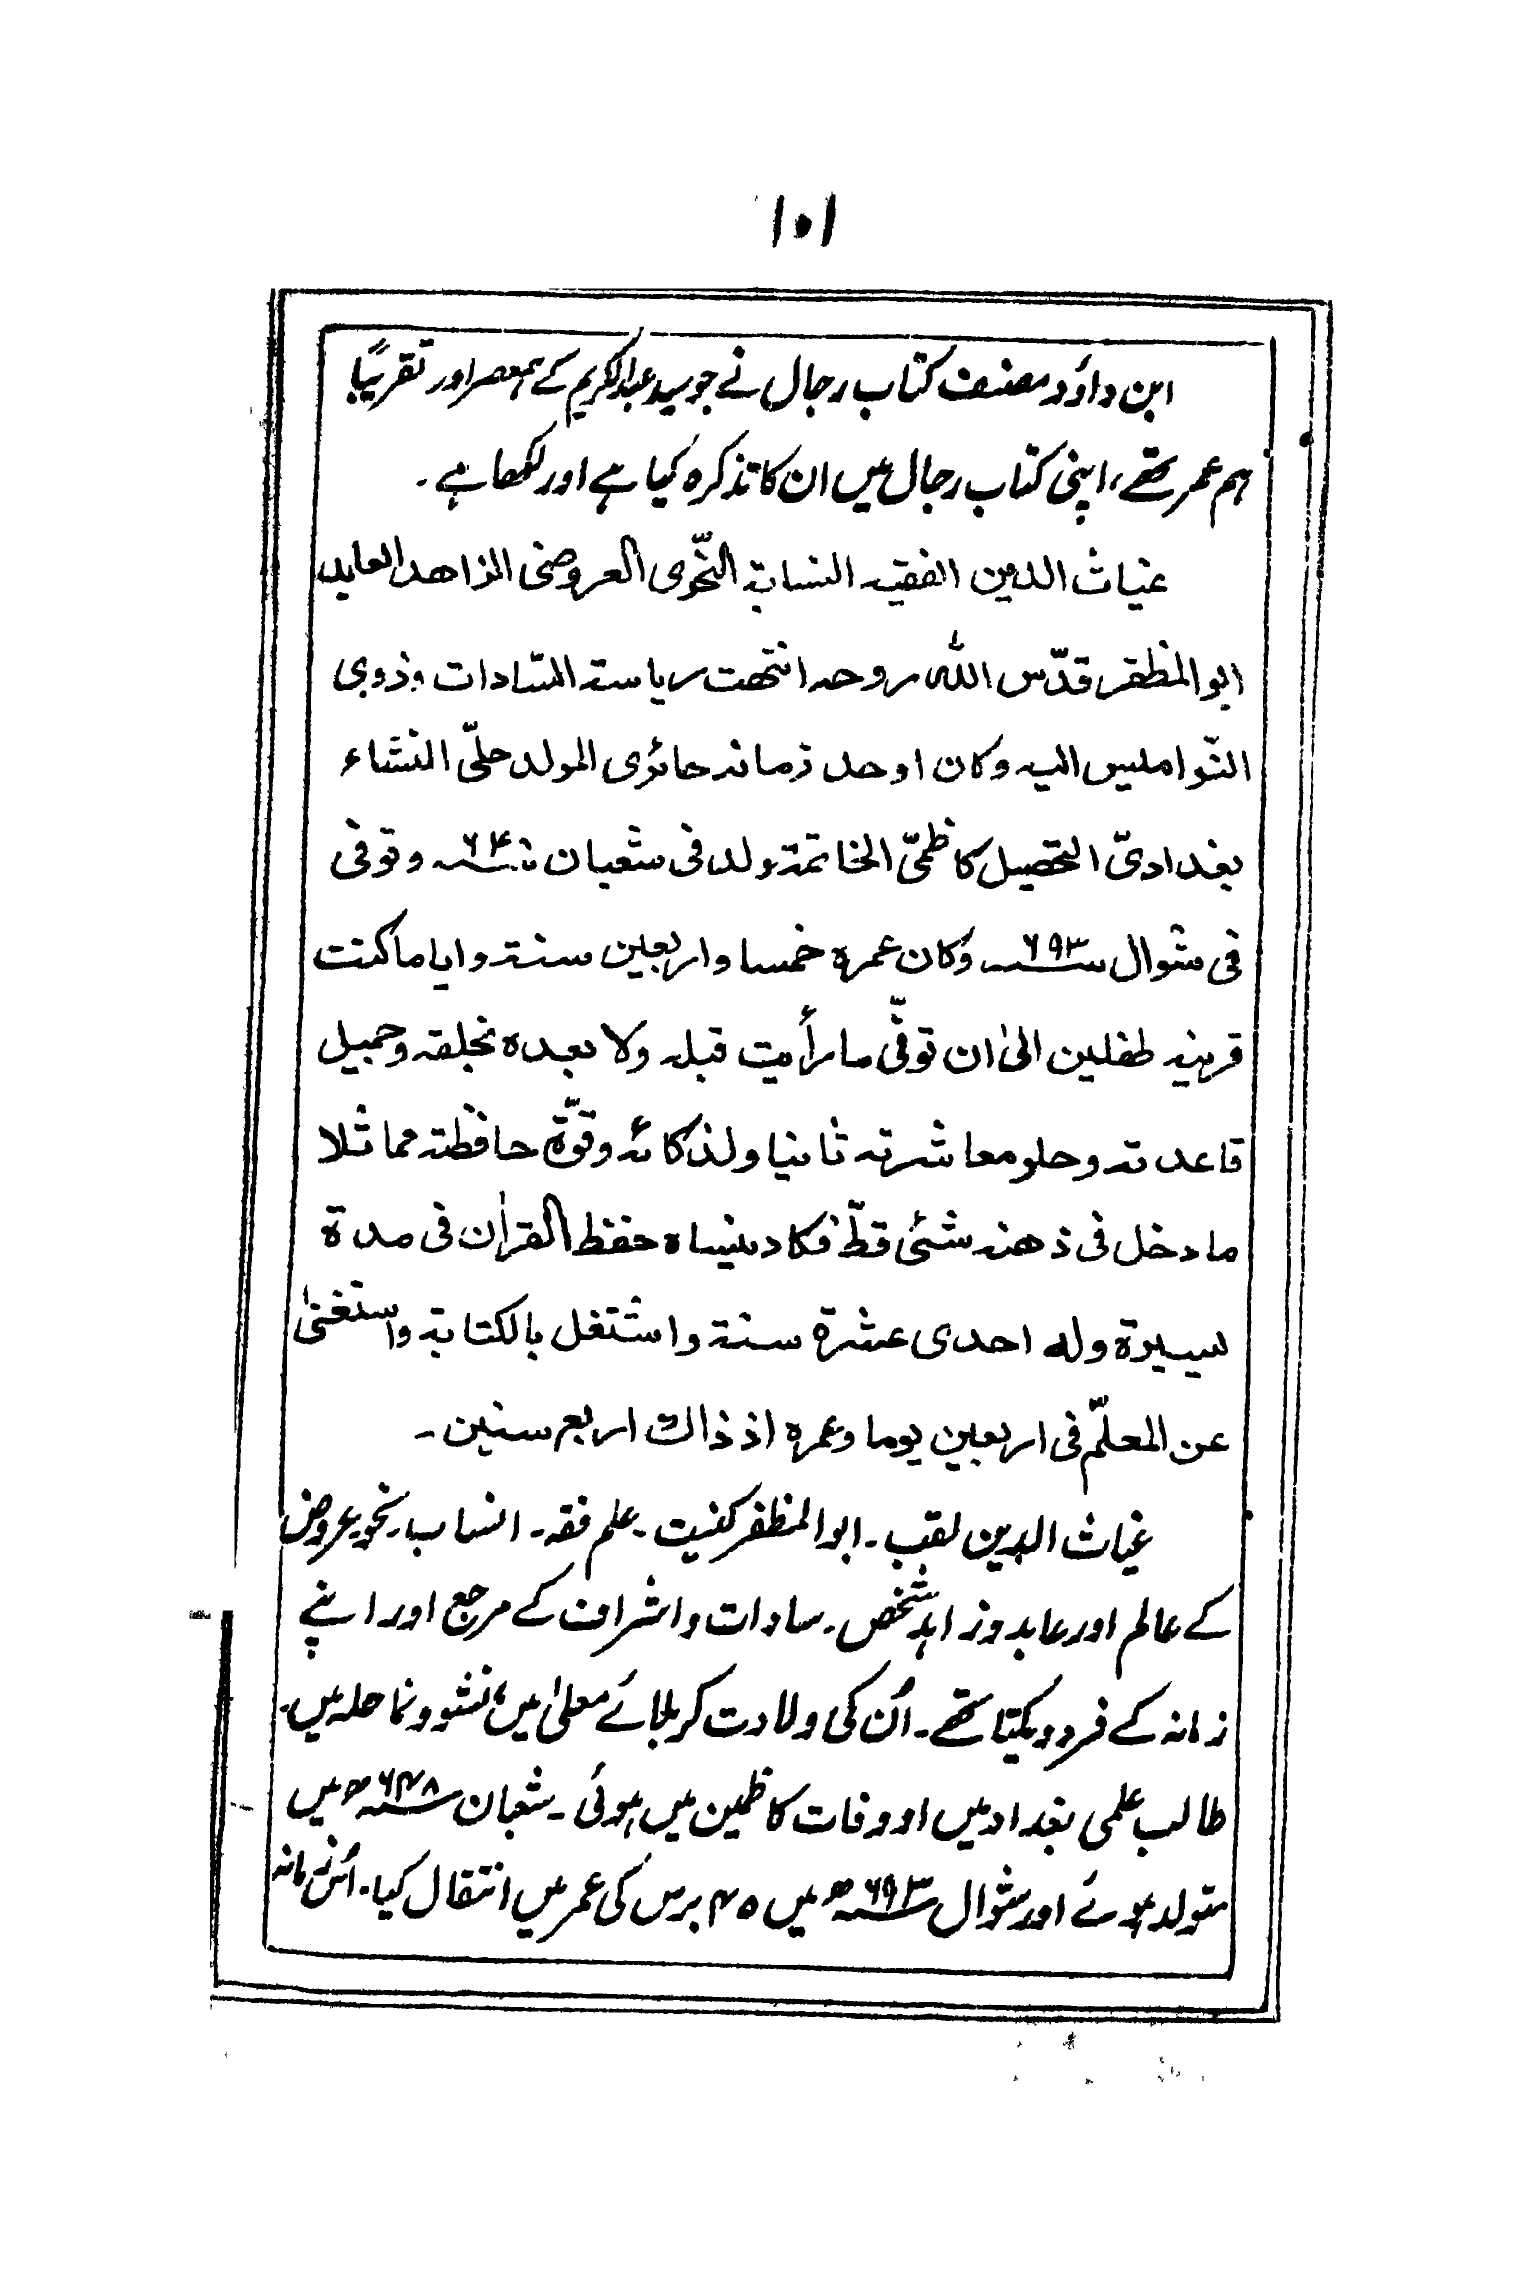 ۱۰۱
ابن داؤد مصنف کتاب رجال نے جو سید عبدالکریم کے ہمعصر اور تقریبًا
ہم عمر تھے، اپنی کتاب رجال میں ان کا تذکرہ کیا ہے اور لکھا ہے۔
غیاث الدین الفقیہ النسابۃ النحّوی العروضی الزاھد العابد
ابوالمظفر قدّس اللہ روحہ انتھت ریاستہ السّادات وذوی
النّوامیس الیہ وکان اوحد زمانہ حائری المولد حلّی النشاء
بغدادیّ التحصیل کاظمّی الخاتمۃ ولد فی شعبان ۶۴ وتوفی
فی شوال ۶۹۳ وکان عمرہ خمسا واربعین سنۃ وایاما کنت
قرینہ طفلین الیٰ ان توفّی ما رأیت قبلہ ولا بعدہ نجلقہ وجمیل
قاعدتہ وحلو معاشرتہ ثانیا ولذکائہ وقوّۃ حافظتہ مماثلا
ما دخل فی ذھنہ شئی قطّ فکاد ینساہ حفظ القراٰن فی مدۃ
یسیرۃ ولہ احدی عشرۃ سنۃ واشتغل بالکتابۃ واستغنیٰ
عن المعلّم فی اربعین یوما وعمرہ اذ ذاک اربع سنین۔
غیاث الدین لقب۔ ابوالمظفر کنیت۔ علم فقہ۔ انساب۔ نحو عروض
کے عالم اور عابد و زاہد شخص۔ سادات و اشراف کے مرجع اور اپنے
زمانہ کے فرد و یکتا تھے۔ اُن کی ولادت کربلائے معلیٰ میں، نشوونما حلہ میں۔
طالب علمی بغداد میں او وفات کاظمین میں ہوئی۔ شعبان ۶۴۸ھ میں
متولد ہوئے اور شوال ۶۹۳ھ میں ۴۵ برس کی عمر میں انتقال کیا۔ اُس زمانہ